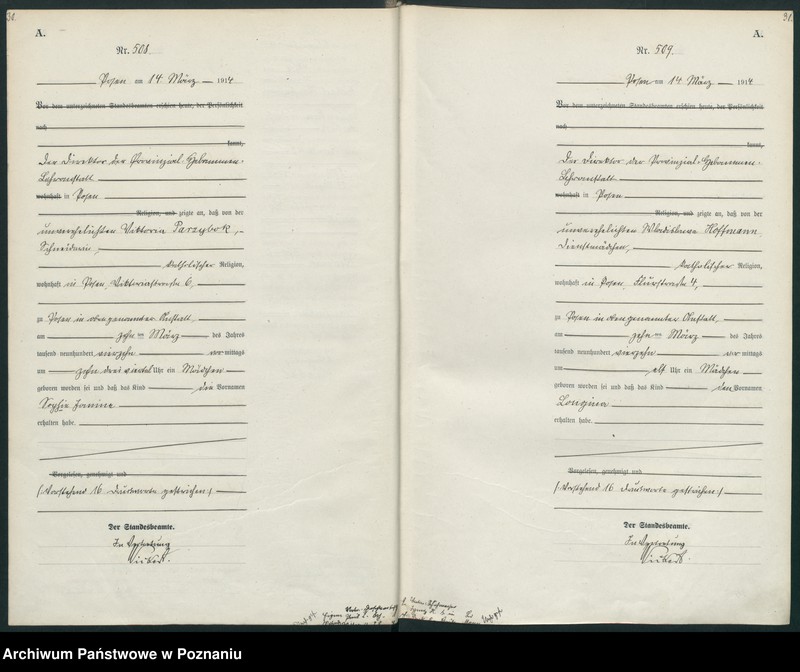 31.
A.
Nr. 508.
Posen am 14 März 1914
Vor dem unterzeichneten Standesbeamten erschien heute, der Persönlichkeit
nach
kannt,
Der Direktor der Provinzial-Hebammen-
Lehranstalt
wohnhaft in Posen
Religion, und zeigte an, daß von der
unverehelichten Viktoria Parzybok,
Schneiderin,
katholischer Religion,
wohnhaft in Posen, Viktoriastraße 6,
zu Posen in obengenannter Anstalt,
am zehn ten März des Jahres
tausend neunhundert vierzehn vor mittags
um zehn dreiviertel Uhr ein Mädchen
geboren worden sei und daß das Kind die Vornamen
Sophie Janine
erhalten habe.
Vorgelesen, genehmigt und
(Vorstehend 16 Druckworte gestrichen)
Der Standesbeamte.
In Vertretung
A.
Nr. 509.
Posen am 14 März 1914
Vor dem unterzeichneten Standesbeamten erschien heute, der Persönlichkeit
nach
kannt,
Der Direktor der Provinzial-Hebammen-
Lehranstalt
wohnhaft in Posen
Religion, und zeigte an, daß von der
unverehelichten Wladislawa Hoffmann
Dienstmädchen,
katholischer Religion,
wohnhaft in Posen, Flurstraße 4,
zu Posen in obengenannter Anstalt,
am zehn ten März des Jahres
tausend neunhundert vierzehn vor mittags
um elf Uhr ein Mädchen
geboren worden sei und daß das Kind den Vornamen
Longina
erhalten habe.
Vorgelesen, genehmigt und
(Vorstehend 16 Druckworte gestrichen)
Der Standesbeamte.
In Vertretung
Archiwum Państwowe w Poznaniu